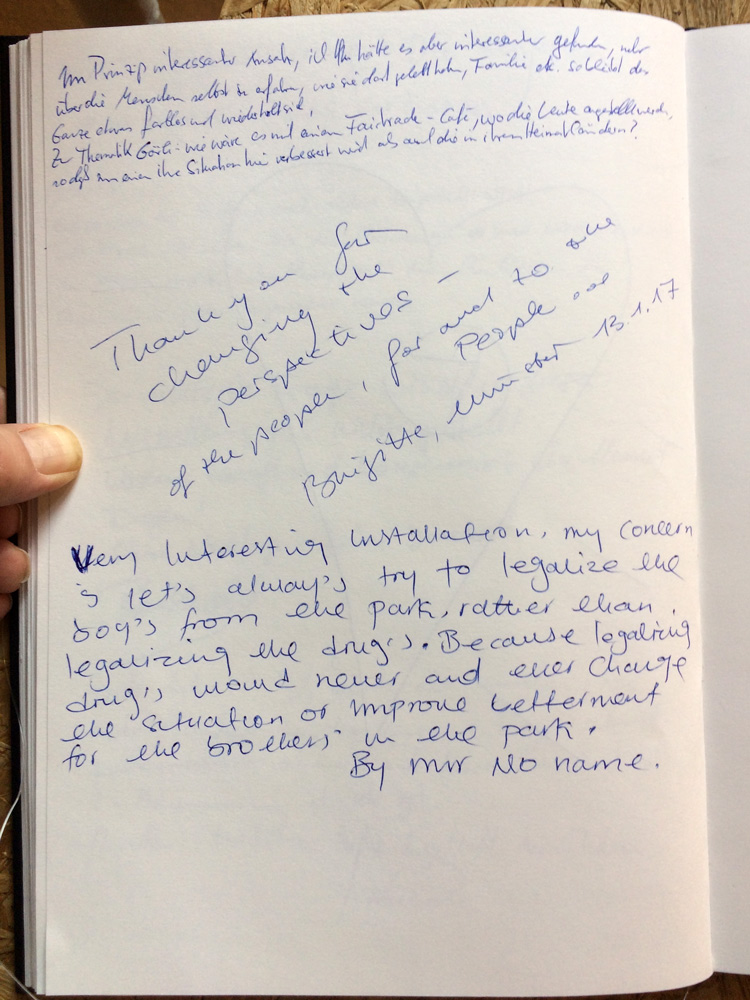 Im Prinzip interessanter Ansatz, ich hätte es aber interessanter gefunden, mehr
über die Menschen selbst zu erfahren, wie sie dort gelebt haben, Familie etc. so bleibt das
Ganze etwas farblos und wiederholt sich.
Zu Thematik Görli: wie wäre es mit einem Fairtrade-Café, wo die Leute angestellt werden,
sodaß zum einen ihre Situation hier verbessert wird als auch die in ihren Heimatländern?
Thank you for
changing the
perspectives –
of the people, for and to the
People
Brigitte, Münster 13.1.17
Very Interesting Installation, my concern
is let's always's try to legalize the
boy's from the park, rather than.
legalizing the drug's. Because legalizing
drug's would never and ever Change
the situation or Improve betterment
for the brothers in the park.
By mr No name.